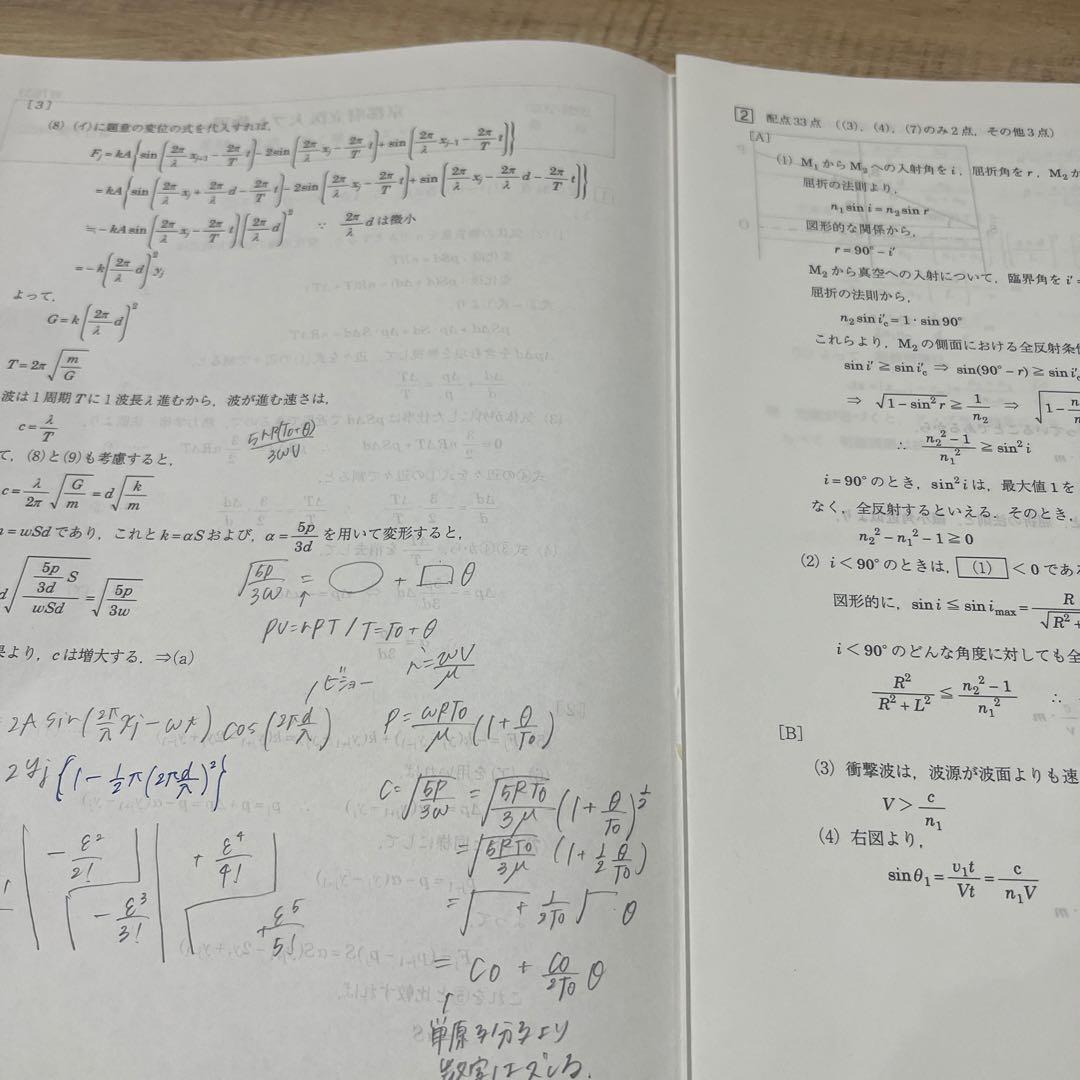 [3]
(8) (イ)に題意の変位の式を代入すれば,
F_j=kA{sin(2π/λ x_{j+1}−2π/T t)−2sin(2π/λ x_j−2π/T t)+sin(2π/λ x_{j−1}−2π/T t)}
=kA{sin(2π/λ x_j+2π/λ d−2π/T t)−2sin(2π/λ x_j−2π/T t)+sin(2π/λ x_j−2π/λ d−2π/T t)}
≒−kA sin(2π/λ x_j−2π/T t)(2π/λ d)^2 ∵ 2π/λ dは微小
=−k(2π/λ d)^2 y_j
よって,
G=k(2π/λ d)^2
T=2π√(m/G)
波は1周期Tに1波長λ進むから, 波が進む速さは,
c=λ/T
5nR(T0+θ)/3wV
て, (8)と(9)も考慮すると,
c=λ/2π √(G/m)=d√(k/m)
=wSdであり, これとk=αSおよび, α=5p/3d を用いて変形すると,
d√((5p/3d S)/(wSd))=√(5p/3w)
√(5p/3w) = ○ + □θ
PV=nRT / T=T0+θ
より, cは増大する. ⇒(a)
n=wV/μ
=2A sin(2π/λ xj−ωt) cos(2πd/λ)
P=wRT0/μ (1+θ/T0)
2yj{1−1/2π(2πd/λ)^2}
C=√(5P/3w)=√(5RT0/3μ)(1+θ/T0)^1/2
=√(5RT0/3μ)(1+1/2 θ/T0)
−ε^2/2! +ε^4/4!
−ε^3/3! +ε^5/5!
=√ + 1/2T0 √ θ
= C0 + C0/2T0 θ
単原子分子より
数字はズレる.
2 配点33点 ((3), (4), (7)のみ2点, その他3点)
[A]
(1) M1からM2への入射角をi, 屈折角をr, M2か
屈折の法則より,
n1 sin i=n2 sin r
図形的な関係から,
r=90°−i′
M2から真空への入射について, 臨界角をi′=
屈折の法則から,
n2 sin i′c=1・sin90°
これらより, M2の側面における全反射条件
sin i′≧sin i′c ⇒ sin(90°−r)≧sin i′c
⇒ √(1−sin^2 r)≧1/n2 ⇒ √(1−n
∴ (n2^2−1)/n1^2≧sin^2 i
i=90°のとき, sin^2 iは, 最大値1を
なく, 全反射するといえる. そのとき,
n2^2−n1^2−1≧0
(2) i<90°のときは, (1) <0であ
図形的に, sin i≦sin imax=R/√(R^2+
i<90°のどんな角度に対しても全
R^2/(R^2+L^2)≦(n2^2−1)/n1^2 ∴
[B]
(3) 衝撃波は, 波源が波面よりも速
V>c/n1
(4) 右図より,
sinθ1=v1t/Vt=c/n1V